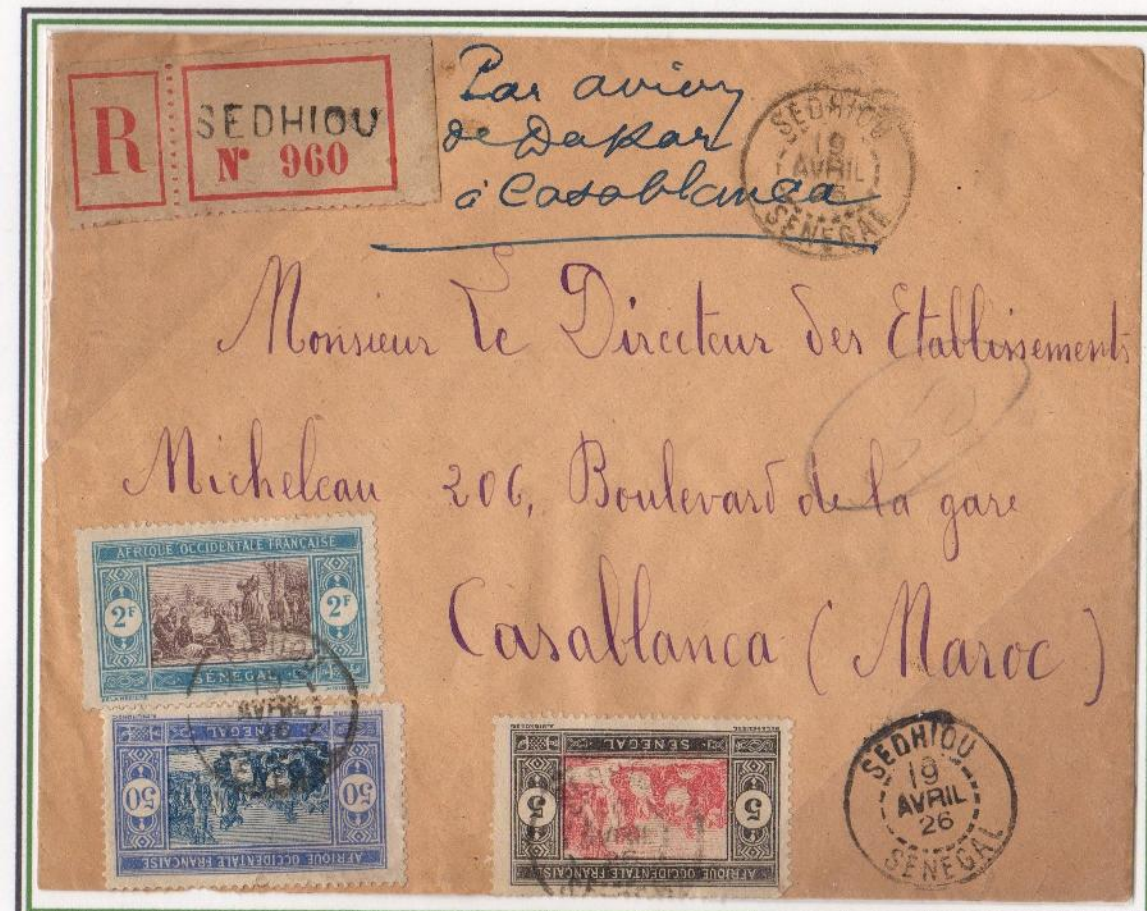 R SEDHIOU
N° 960
Par avion
de Dakar
à Casablanca
SEDHIOU
19
AVRIL
26
SENEGAL
Monsieur Le Directeur des Etablissements
Micheleau 206, Boulevard de la gare
Casablanca (Maroc)
AFRIQUE OCCIDENTALE FRANÇAISE
2F 2F
SÉNÉGAL
AVRIL
SÉNÉGAL
50 50
AFRIQUE OCCIDENTALE FRANÇAISE
SÉNÉGAL
5 5
AFRIQUE OCCIDENTALE FRANÇAISE
SEDHIOU
19
AVRIL
26
SENEGAL